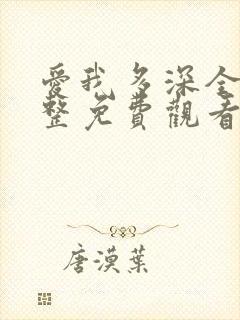 愛我多深全
整免費觀看
唐漠葉